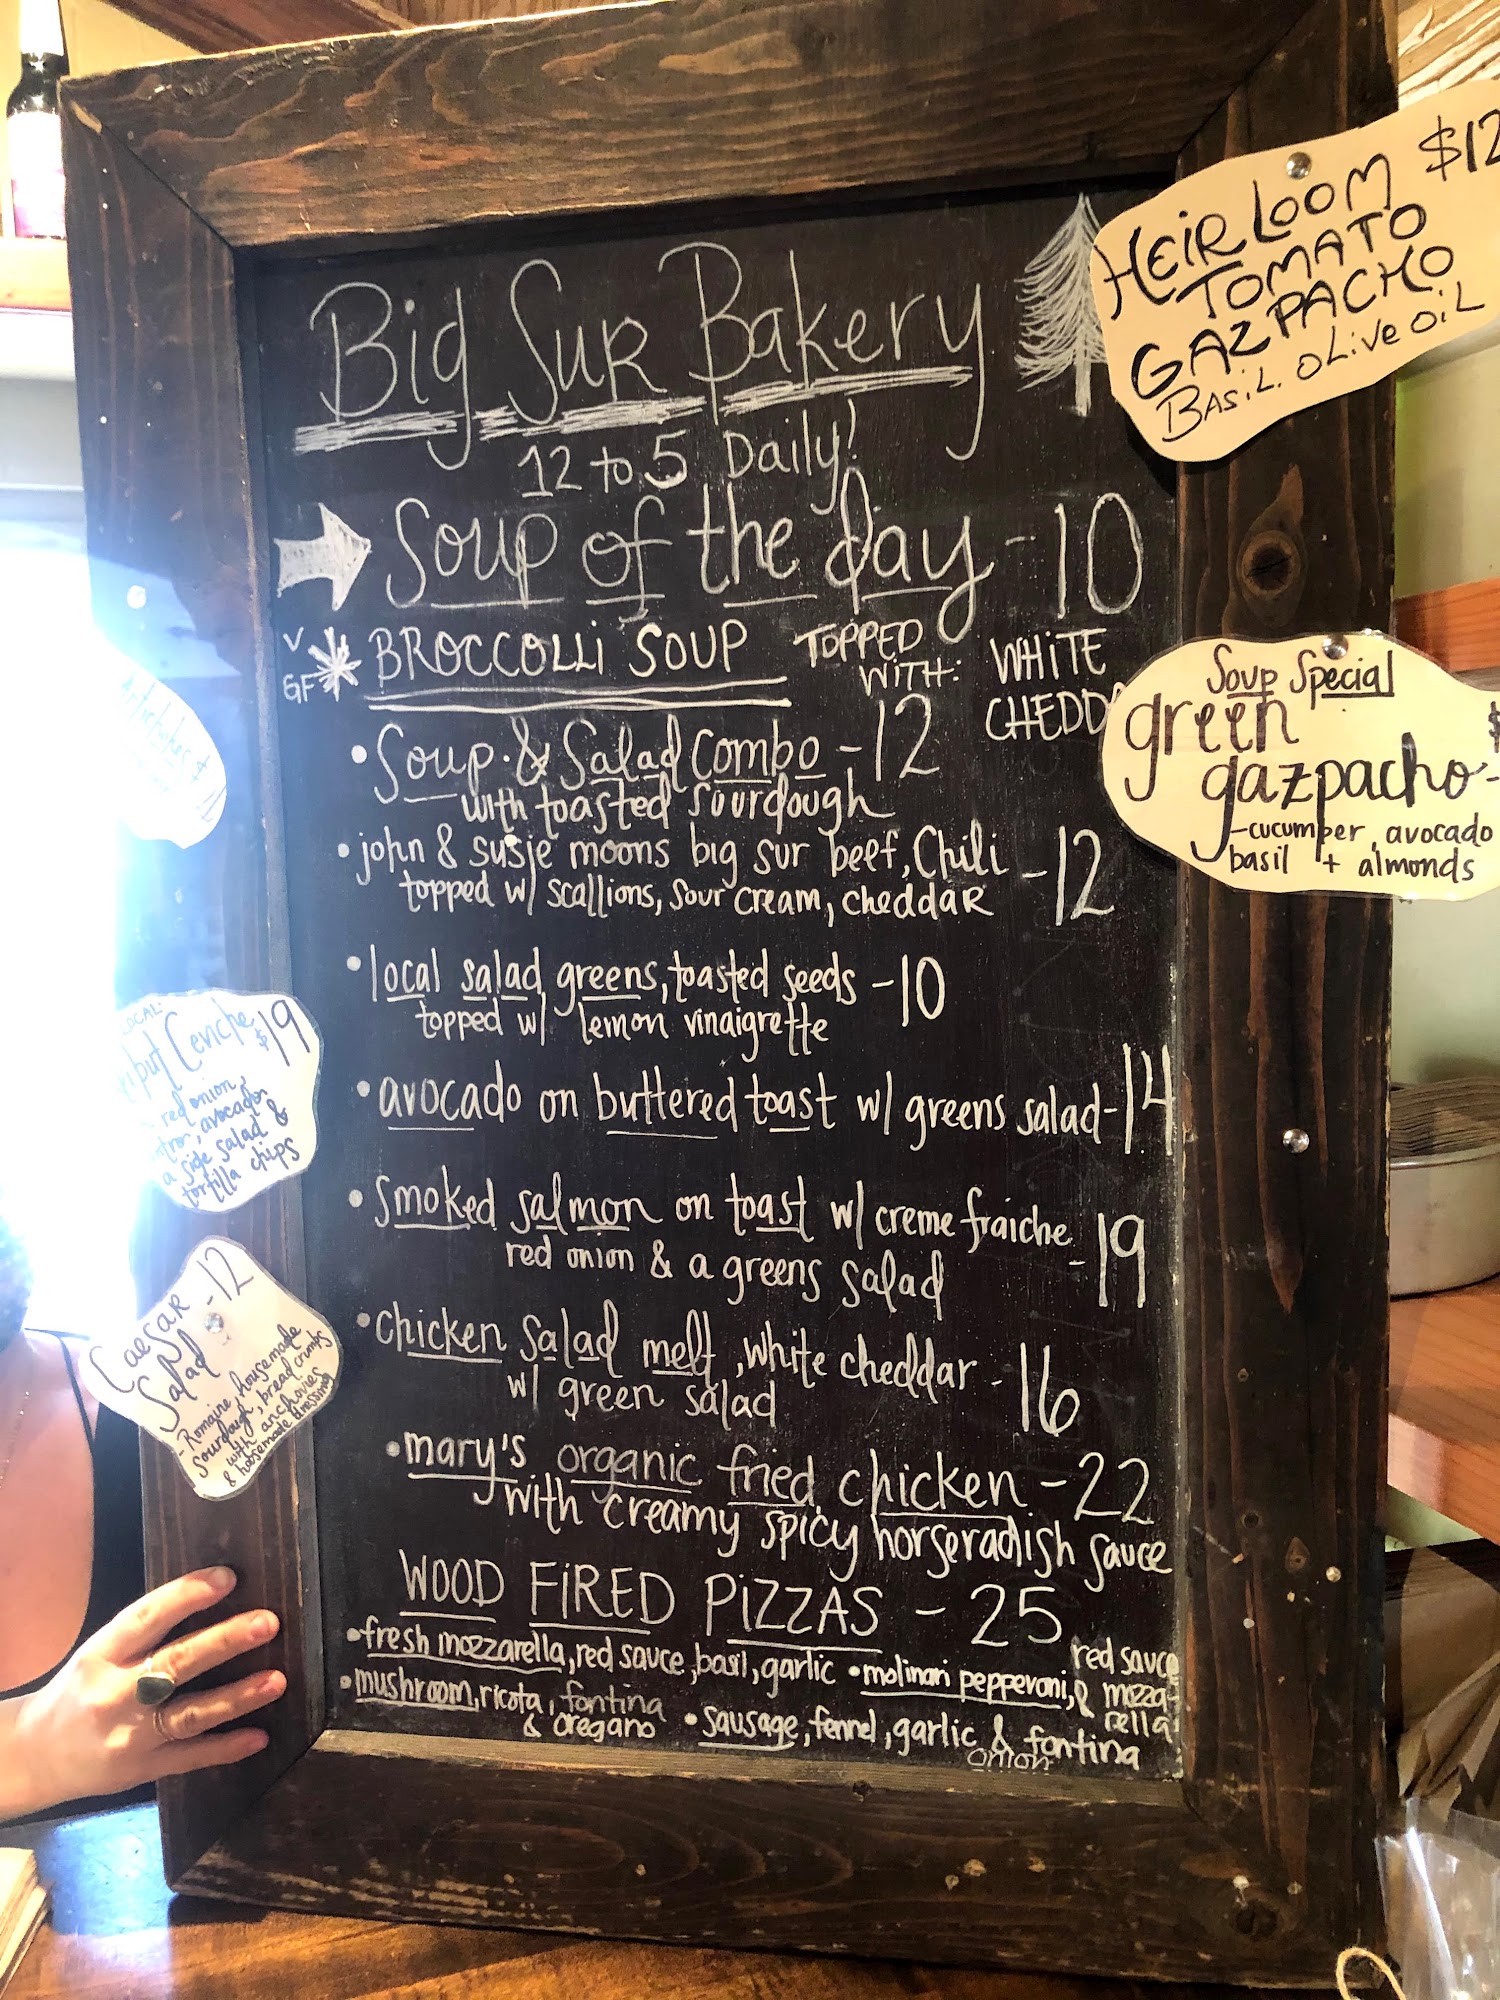 Big Sur Bakery
12 to 5 Daily!
Soup of the day - 10
V
GF
BROCCOLLi SOUP
TOPPED
WITH:
WHiTE
CHEDD
• Soup & Salad Combo - 12
with toasted sourdough
• john & susie moons big sur beef, Chili - 12
topped w/ scallions, sour cream, cheddar
• local salad greens, toasted seeds - 10
topped w/ lemon vinaigrette
• avocado on buttered toast w/ greens salad - 14
• smoked salmon on toast w/ creme fraiche
red onion & a greens salad - 19
• chicken salad melt, white cheddar - 16
w/ green salad
• mary's organic fried chicken - 22
with creamy spicy horseradish sauce
WOOD FiRED PiZZAS - 25
• fresh mozzarella, red sauce, basil, garlic
• molinari pepperoni, red sauce
& mozza-
rella
• mushroom, ricota, fontina
& oregano
• sausage, fennel, garlic & fontina
onion
HEiRLOOM $12
TOMATO
GAZPACHO
BASiL. OLiVE OiL
Soup Special
green $
gazpacho -
- cucumber, avocado
basil + almonds
Artichokes
LOCAL:
but Ceviche $19
red onion,
avocado
a side salad &
tortilla chips
Caesar - 12
Salad
- Romaine, housemade
sourdough, bread crumbs
with anchovies
& housemade dressing